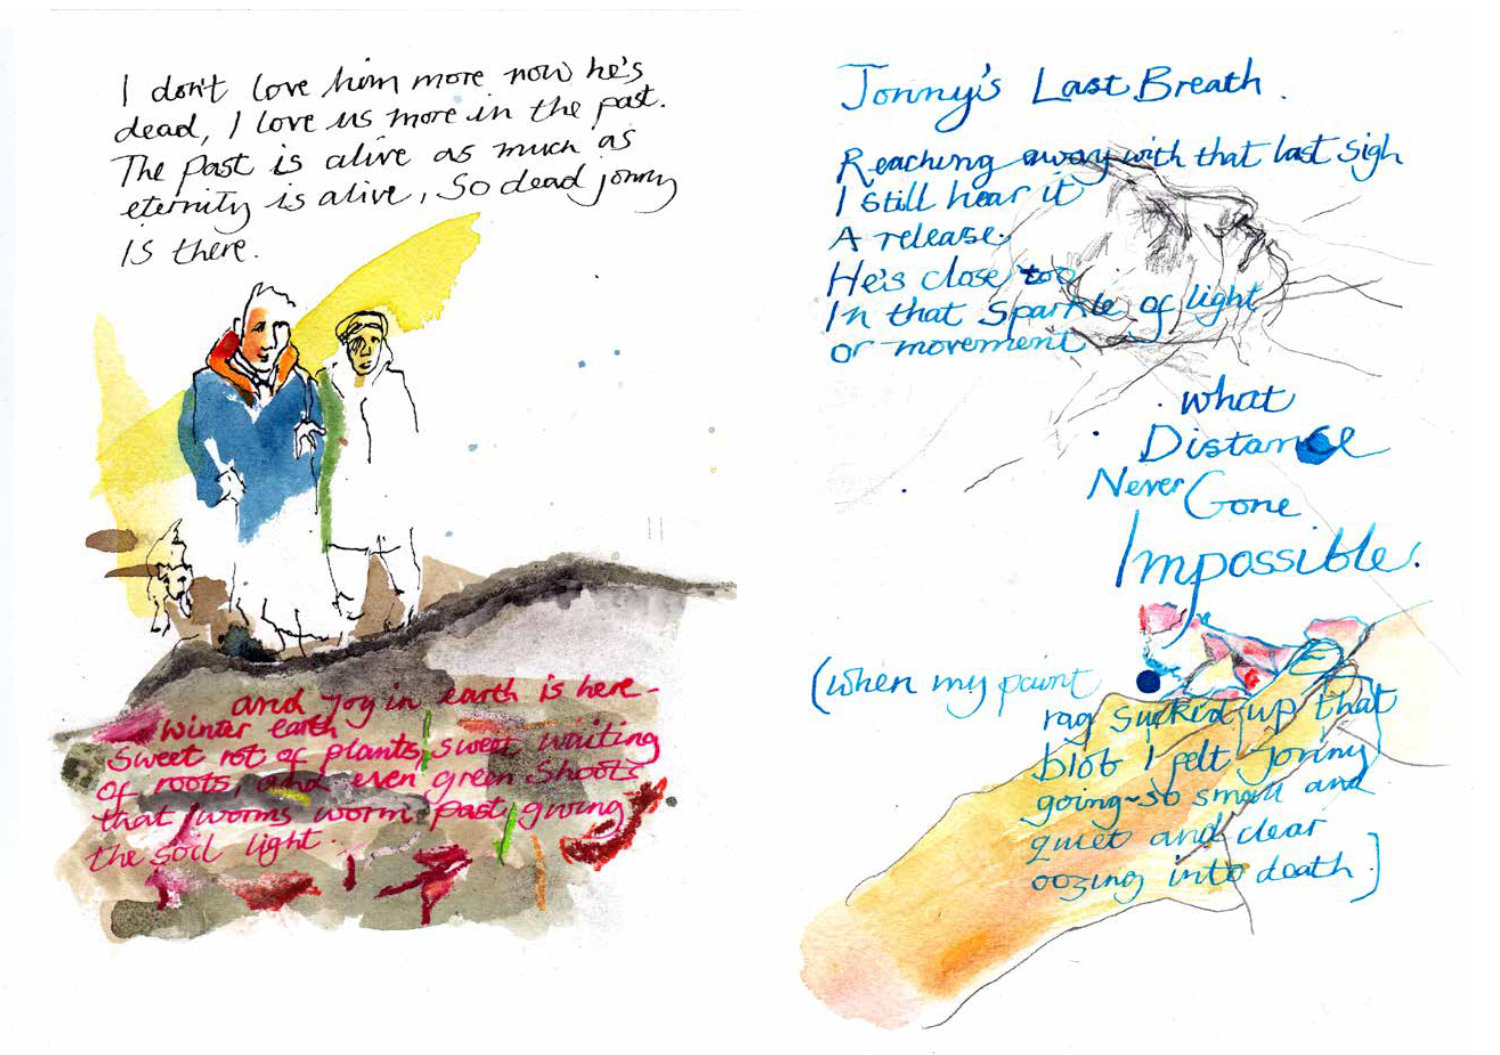 I don't love him more now he's
dead, I love us more in the past.
The past is alive as much as
eternity is alive, so dead jonny
is there.
and joy in earth is here -
Winter earth
Sweet rot of plants, sweet waiting
of roots, and even green shoots
that worms worm past, giving
the soil light.
Jonny's Last Breath.
Reaching away with that last sigh
I still hear it
A release.
He's close too
In that sparkle of light
or movement
what
Distance
Never Gone
Impossible.
(when my paint
rag sucked up that
blob I felt Jonny
going~so small and
quiet and clear
oozing into death.]